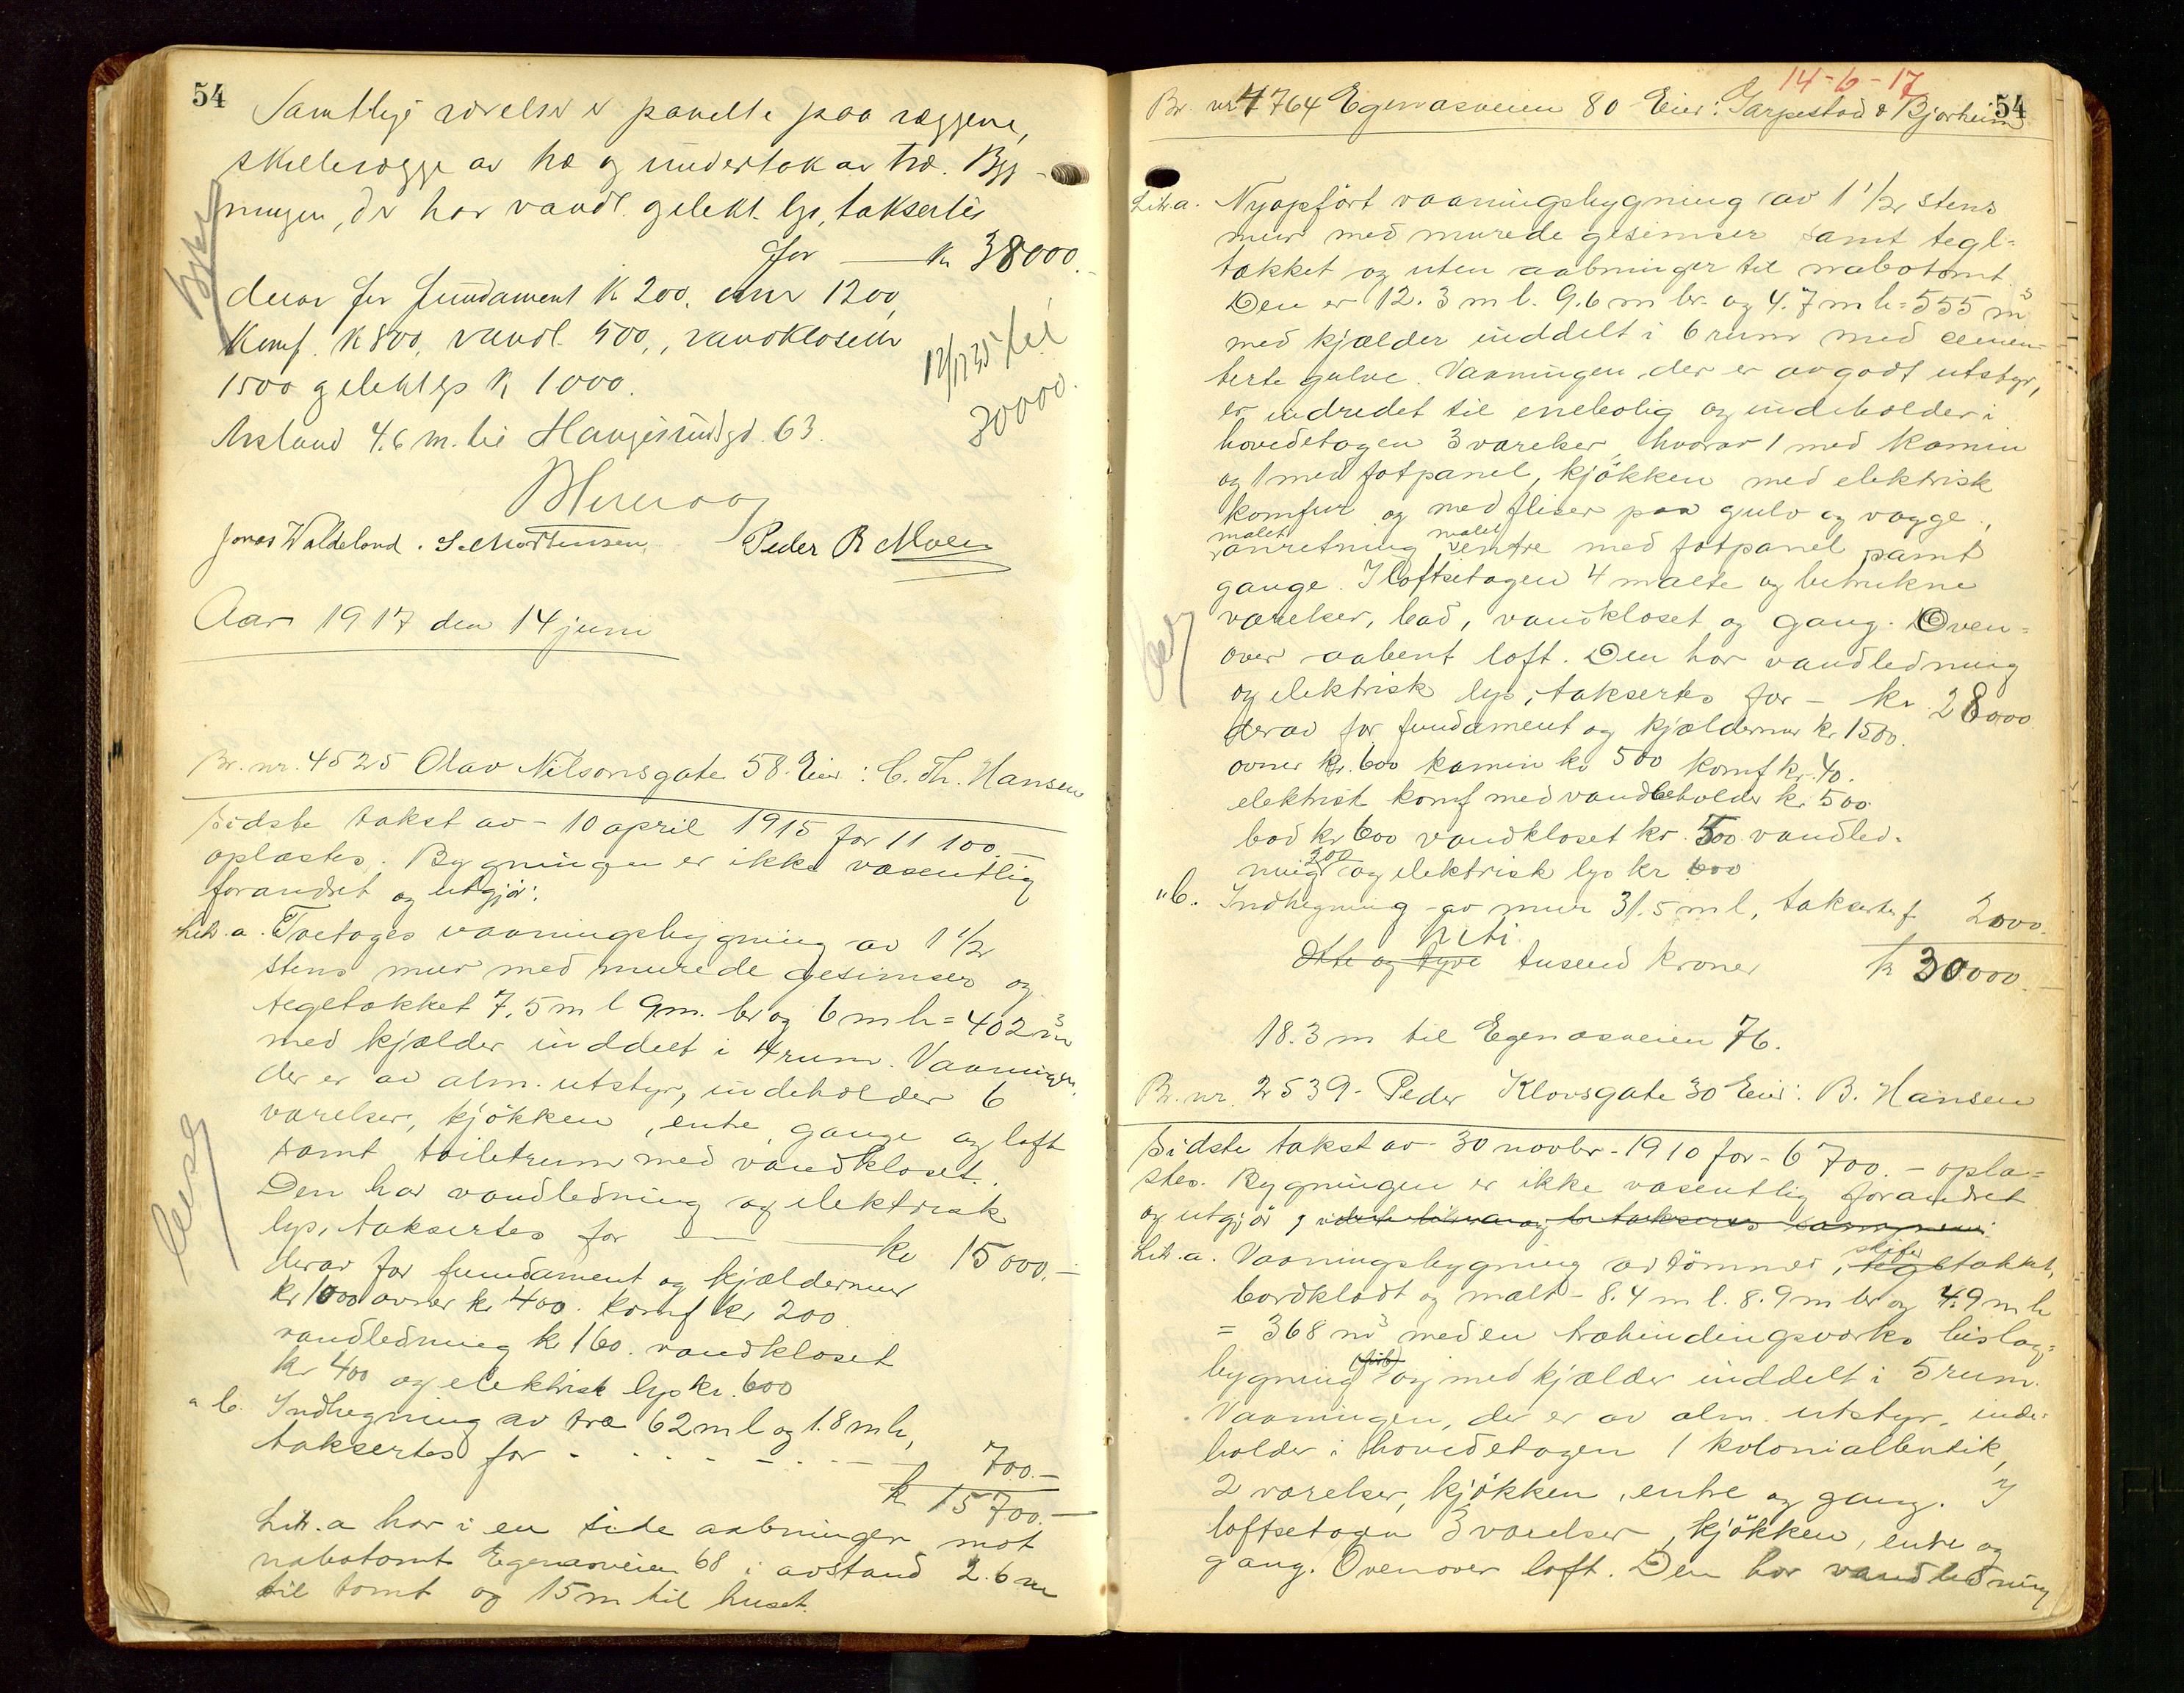 54
Samtlige værelser er panelte paa væggene,
skillevægge av træ og undertak av træ. Byg-
ningen, der har vandl. og elekt. lys, taksertes
for — kr 38000.-
derav for fundament K 200, ovner 1200,
Komf. K 800, vandl. 500,, vandklosetter
1500 og elekt lys K 1000.
Avstand 4.6 m. til Haugesundgd. 63.
30000.
Jonas Waldeland. S. Mortensen. Peder R Moen
Aar 1917 den 14 juni
Br. nr. 4525 Olav Nilsonsgate 58. Eier: C. Th. Hansen
Sidste takst av - 10 april 1915 for 11 100.-
oplæstes. Bygningen er ikke væsentlig
forandret og utgjør:
Litr. a. Toetages vaaningsbygning av 1 1/2
stens mur med murede gesimser og
tegltækket 7.5 m l 9 m. br og 6 m h = 402 m³
med kjælder inddelt i 4 rum. Vaaningen,
der er av alm. utstyr, indeholder 6
værelser, kjøkken, entre, gange og loft
samt toiletrum med vandkloset.
Den har vandledning og elektrisk
lys, taksertes for — kr 15000.-
derav for fundament og kjældermur
kr 1000 ovner kr 400. komf kr 200
vandledning kr 160. vandkloset
kr 400 og elektrisk lys kr. 600
" b. Indhegning av træ 62 m l og 1.8 m h,
taksertes for - - - - 700.-
kr 15700.-
Litr. a har i en side aabninger mot
nabotomt Egenæsveien 68 i avstand 2.6 m
til tomt og 15 m til huset.
14-6-17
54
Br. nr 4764 Egenæsveien 80 Eier: Garpestad & Bjorheim
Litr. a. Nyopført vaaningsbygning av 1 1/2 stens
mur med murede gesimser samt tegl-
tækket og uten aabninger til nabotomt.
Den er 12.3 m l. 9.6 m br. og 4.7 m h = 555 m³
med kjælder inddelt i 6 rum med cemen-
terte gulve. Vaaningen der er av godt utstyr,
er indredet til enebolig og indeholder i
hovedetagen 3 værelser, hvorav 1 med kamin
og 1 med fotpanel, kjøkken med elektrisk
komfur og med fliser paa gulv og vægge,
malet malet
anretning, entre med fotpanel samt
gange. I loftsetagen 4 malte og betrukne
værelser, bad, vandkloset og gang. Oven-
over aabent loft. Den har vandledning
og elektrisk lys, taksertes for - kr. 28000
derav for fundament og kjældermur kr. 1500.
ovner kr. 600 kamin kr 500 komf kr. 40.
elektrisk komf med vandbeholder kr. 500.
bad kr 600 vandkloset kr. 500 vandled-
200
ning og elektrisk lys kr 600
" b. Indhegning av mur 31.5 m l, taksertes f. 2000.
tréti
Otte og tyve tusend kroner kr 30000.-
18.3 m til Egenæsveien 76.
Br. nr. 2539. Peder Klovsgate 30 Eier: B. Hansen
Sidste takst av 30 novbr. 1910 for - 6700. - oplæ-
stes. Bygningen er ikke væsentlig forandret
og utgjør,
skifer
Litr. a. Vaaningsbygning av tømmer, tegltækket,
bordklædt og malt - 8.4 m l. 8.9 m br og 4.9 m h
= 368 m³ med en træbindingsverks bislag-
bygning og med kjælder inddelt i 5 rum.
Vaaningen, der er av alm. utstyr, inde-
holder i hovedetagen 1 kolonialbutik,
2 værelser, kjøkken, entre og gang. I
loftsetagen 3 værelser, kjøkken, entre og
gang. Ovenover loft. Den har vandledning